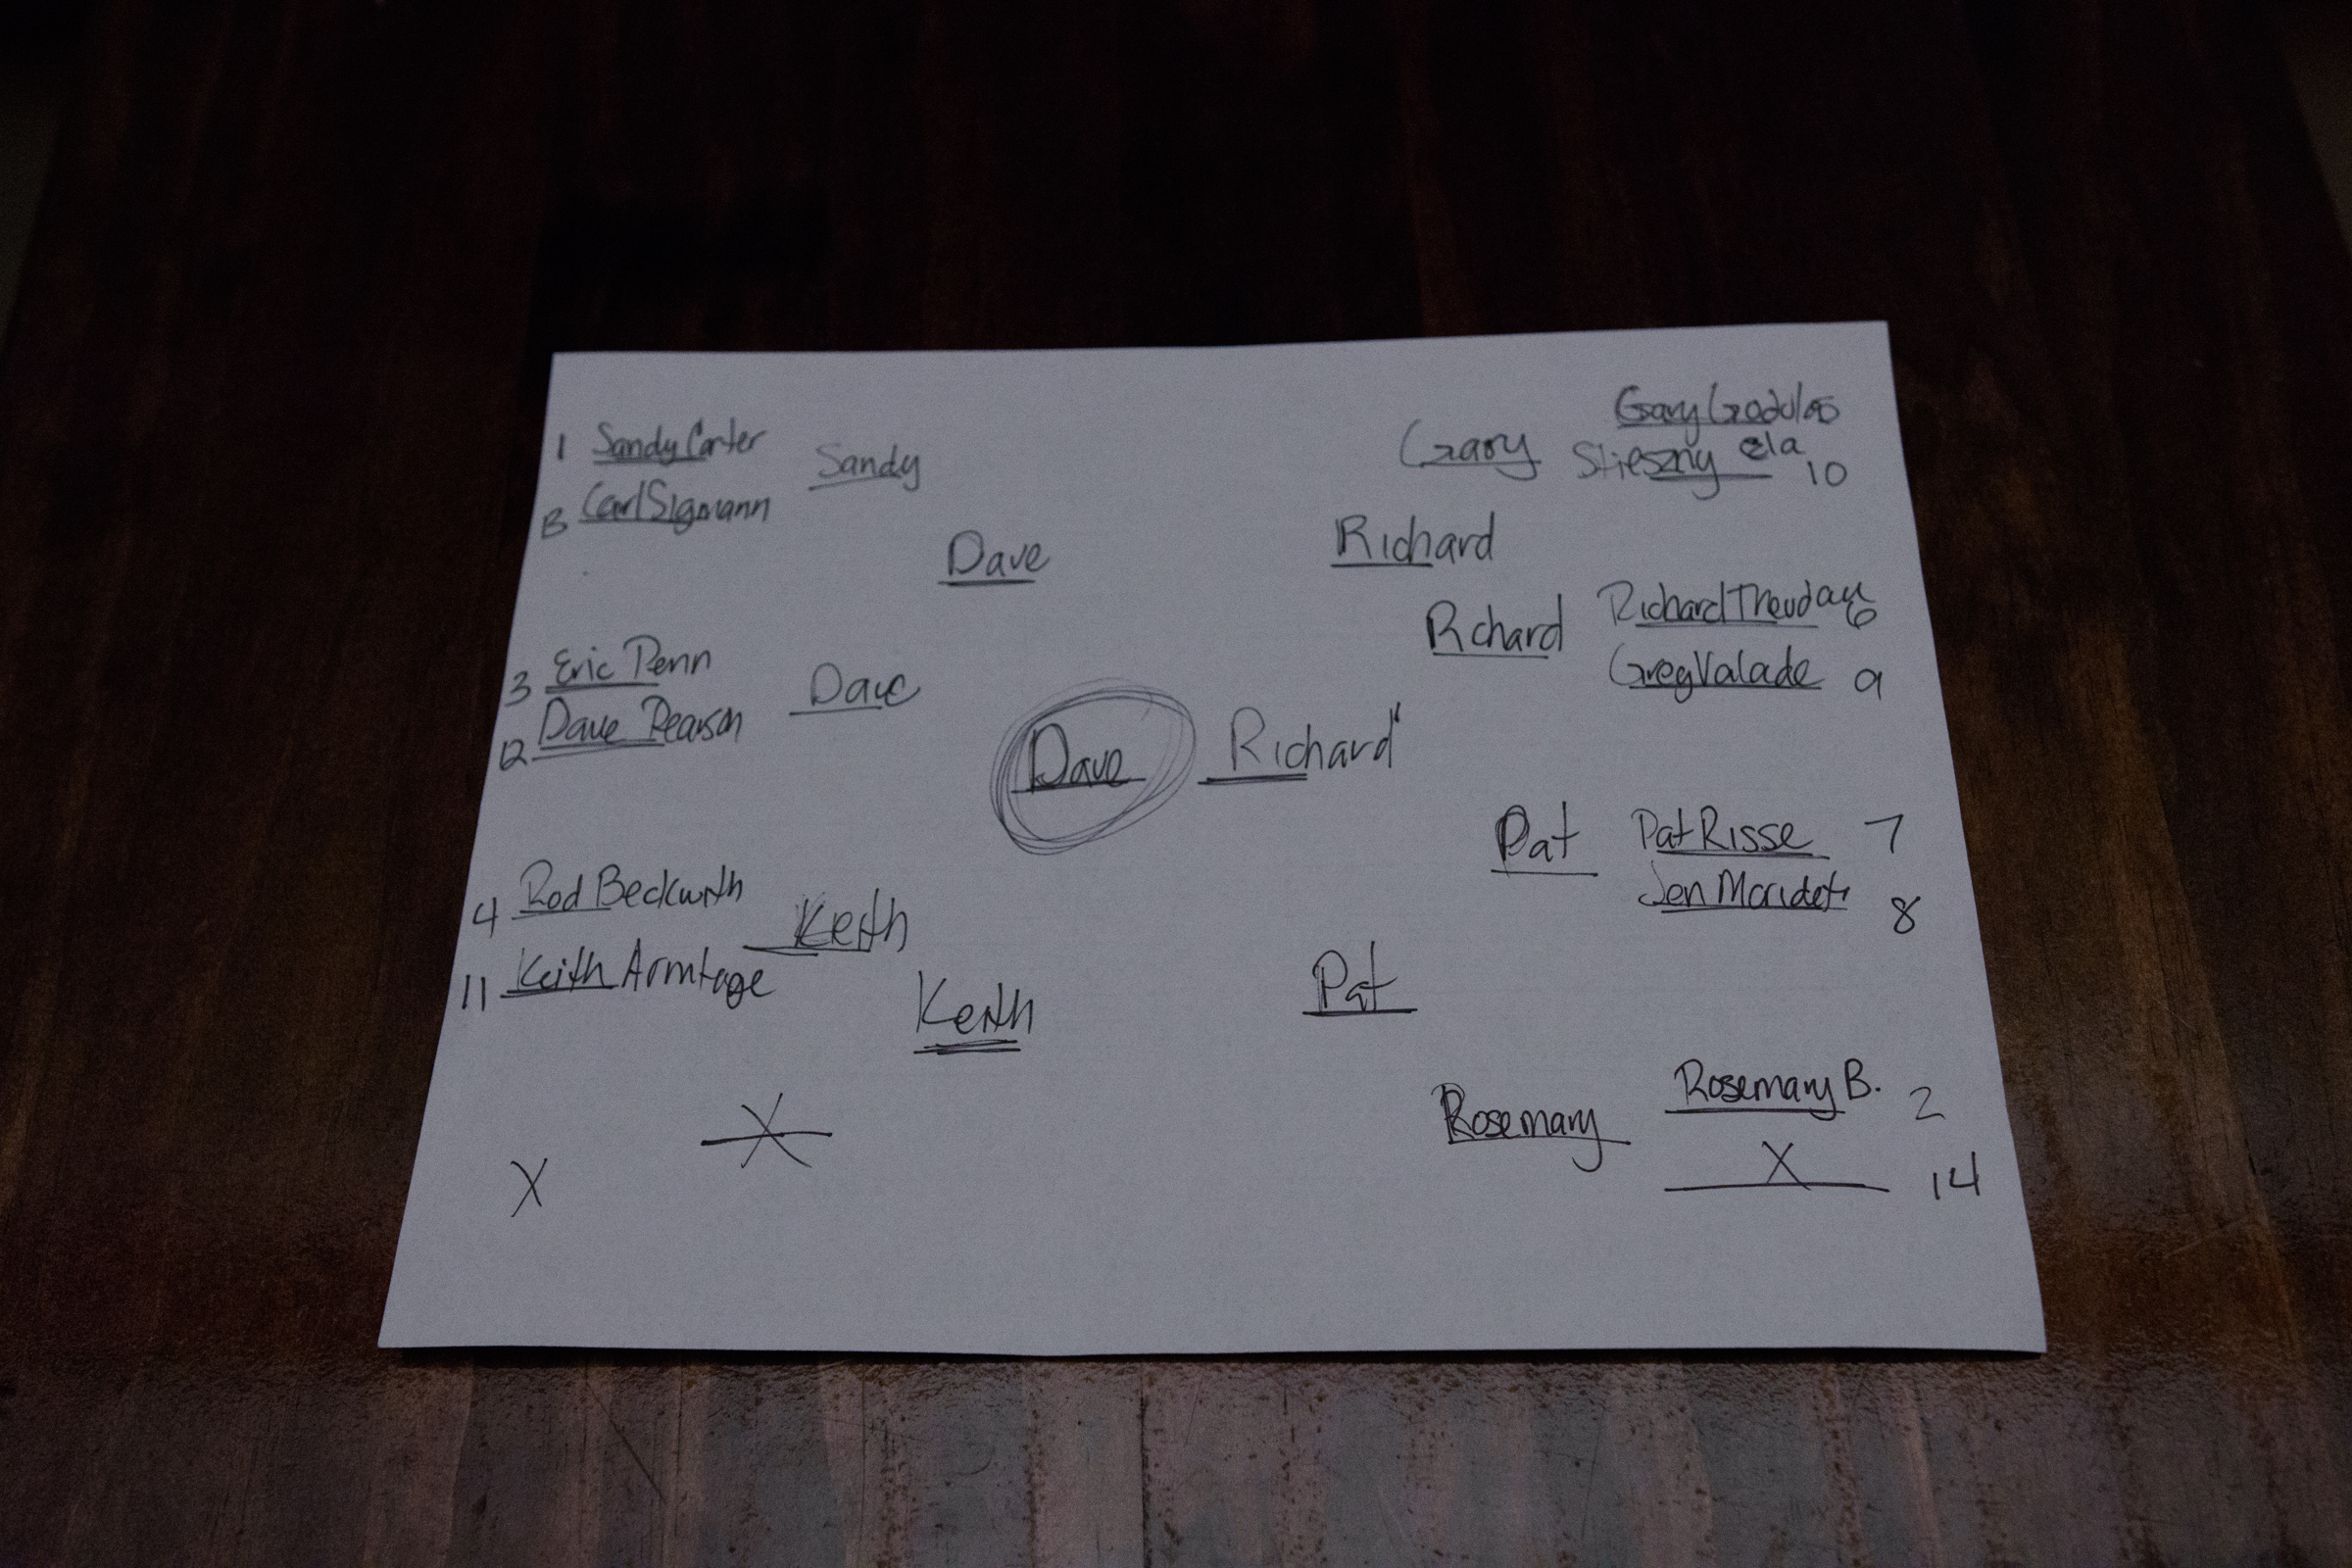 1 Sandy Carter
Sandy
B Carl Sigmann
Dave
3 Eric Penn
Dave
12 Dave Pearson
Dave
4 Rod Beckwith
Keith
11 Keith Armitage
Keith
X
X
Gary
Gary
ela
10
Richard
Richard
6
Rchard
Greg Valade 9
Richard
Pat
Pat Risse 7
Jen 8
Pat
Rosemary
Rosemary B. 2
X 14